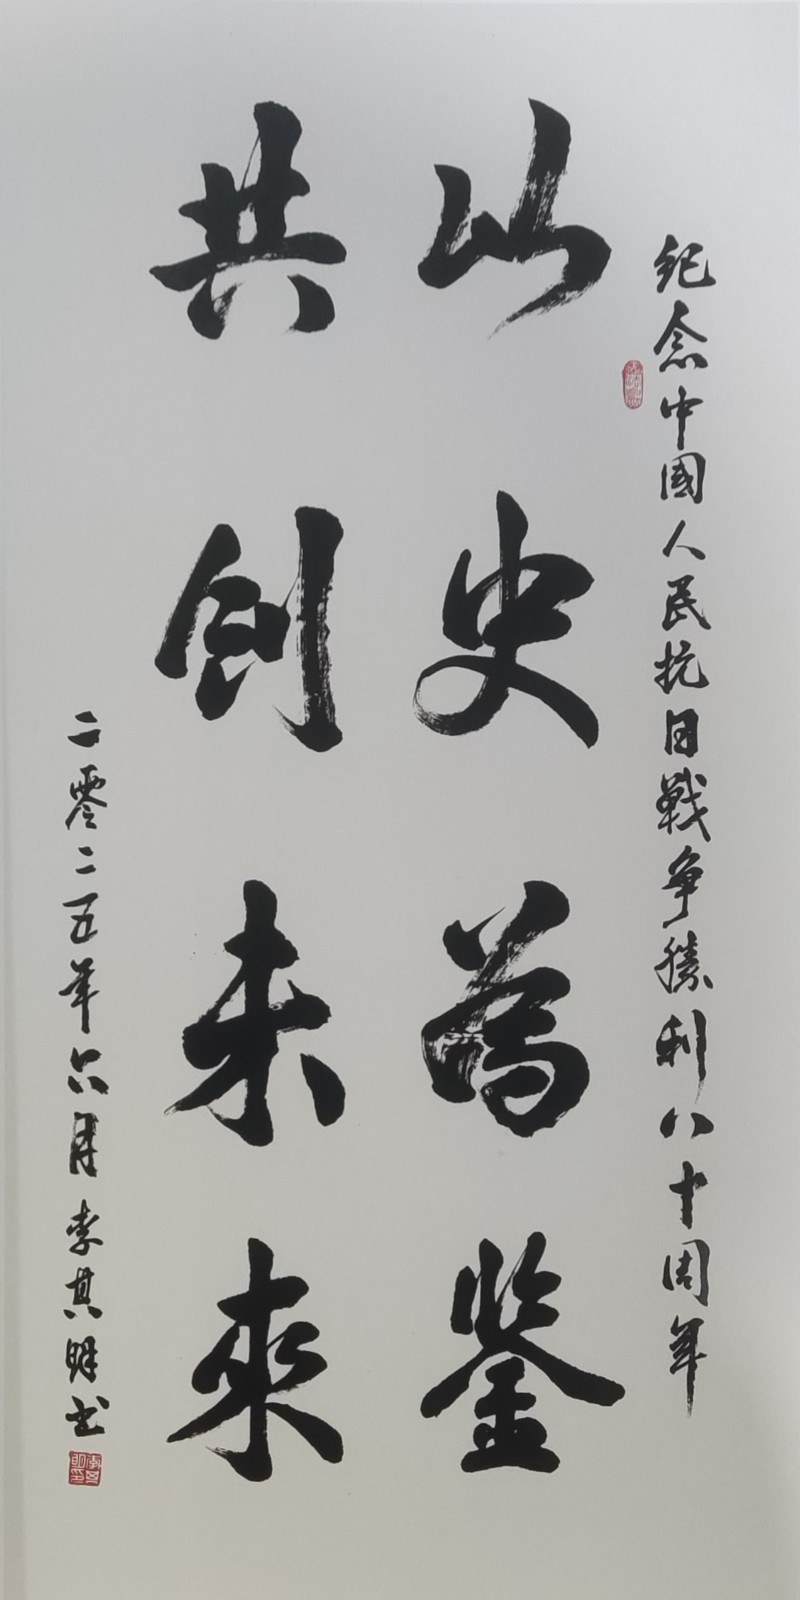 纪念中國人民抗日戰争勝利八十周年
以史為鉴
共创未來
二零二五年六月李其明书